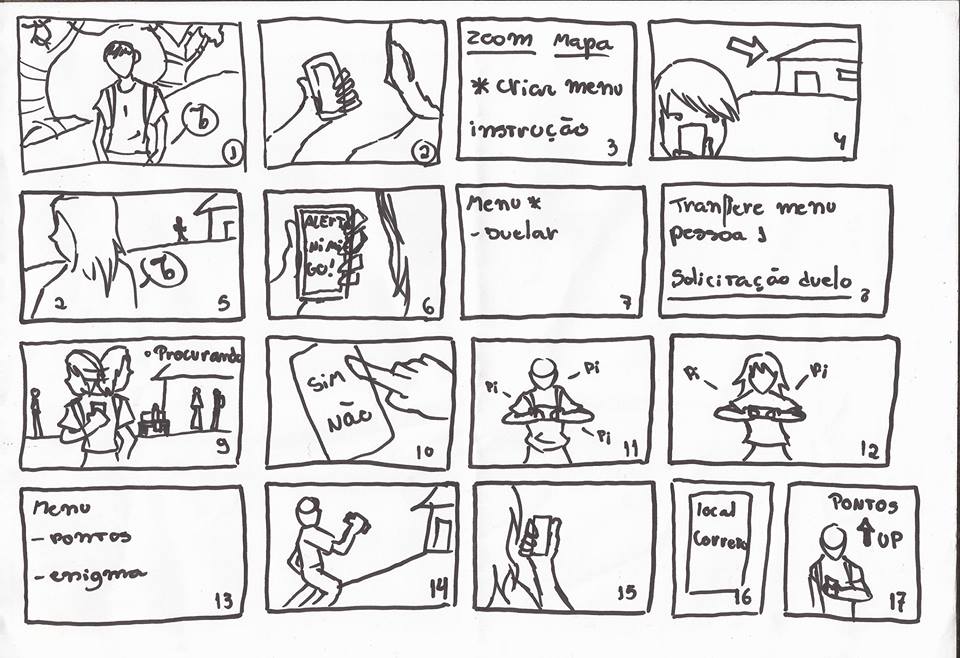 1
2
zoom Mapa
* criar menu
instrução
3
4
2
5
ALERTA
INIMI
GO!
6
Menu *
- Duelar
7
Tranfere menu
pessoa 1
Solicitação duelo
8
• Procurando
9
SIM
NÃO
10
Pi
Pi
Pi
11
Pi
Pi
12
Menu
- pontos
- enigma
13
14
15
local
correto
16
PONTOS
UP
17